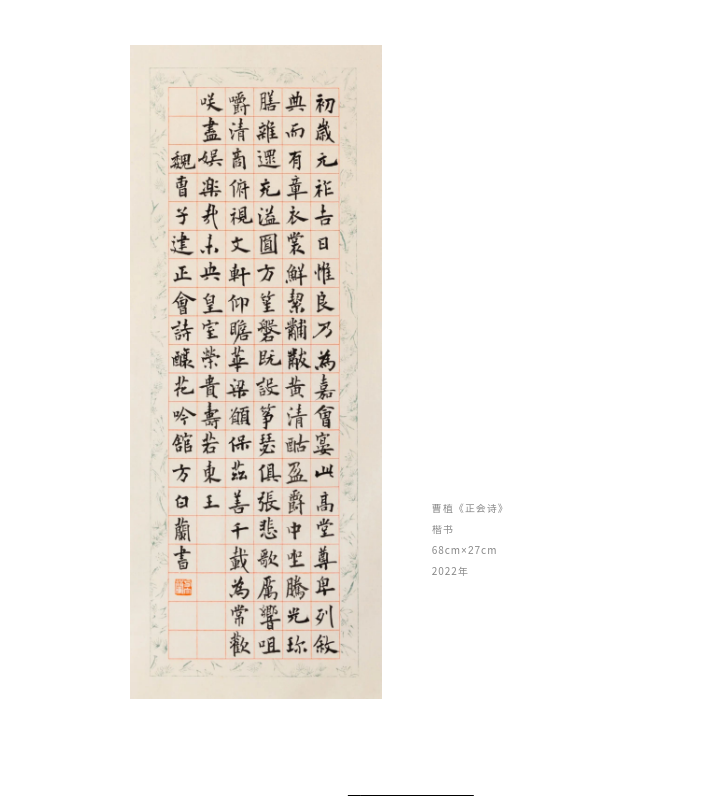 初歲元祚吉日惟良乃為嘉會宴此高堂尊卑列敘
典而有章衣裳鮮絜黼黻黄清酤盈爵中坐騰光珎
膳雜遝充溢圓方笙磬既設筝瑟俱張悲歌厲響咀
嚼清商俯視文軒仰瞻華梁願保茲善千載為常歡
咲盡娱楽哉未央皇室榮貴壽若東王
魏曹子建正會詩醸花吟舘方白蘭書
曹植《正会诗》
楷书
68cm×27cm
2022年